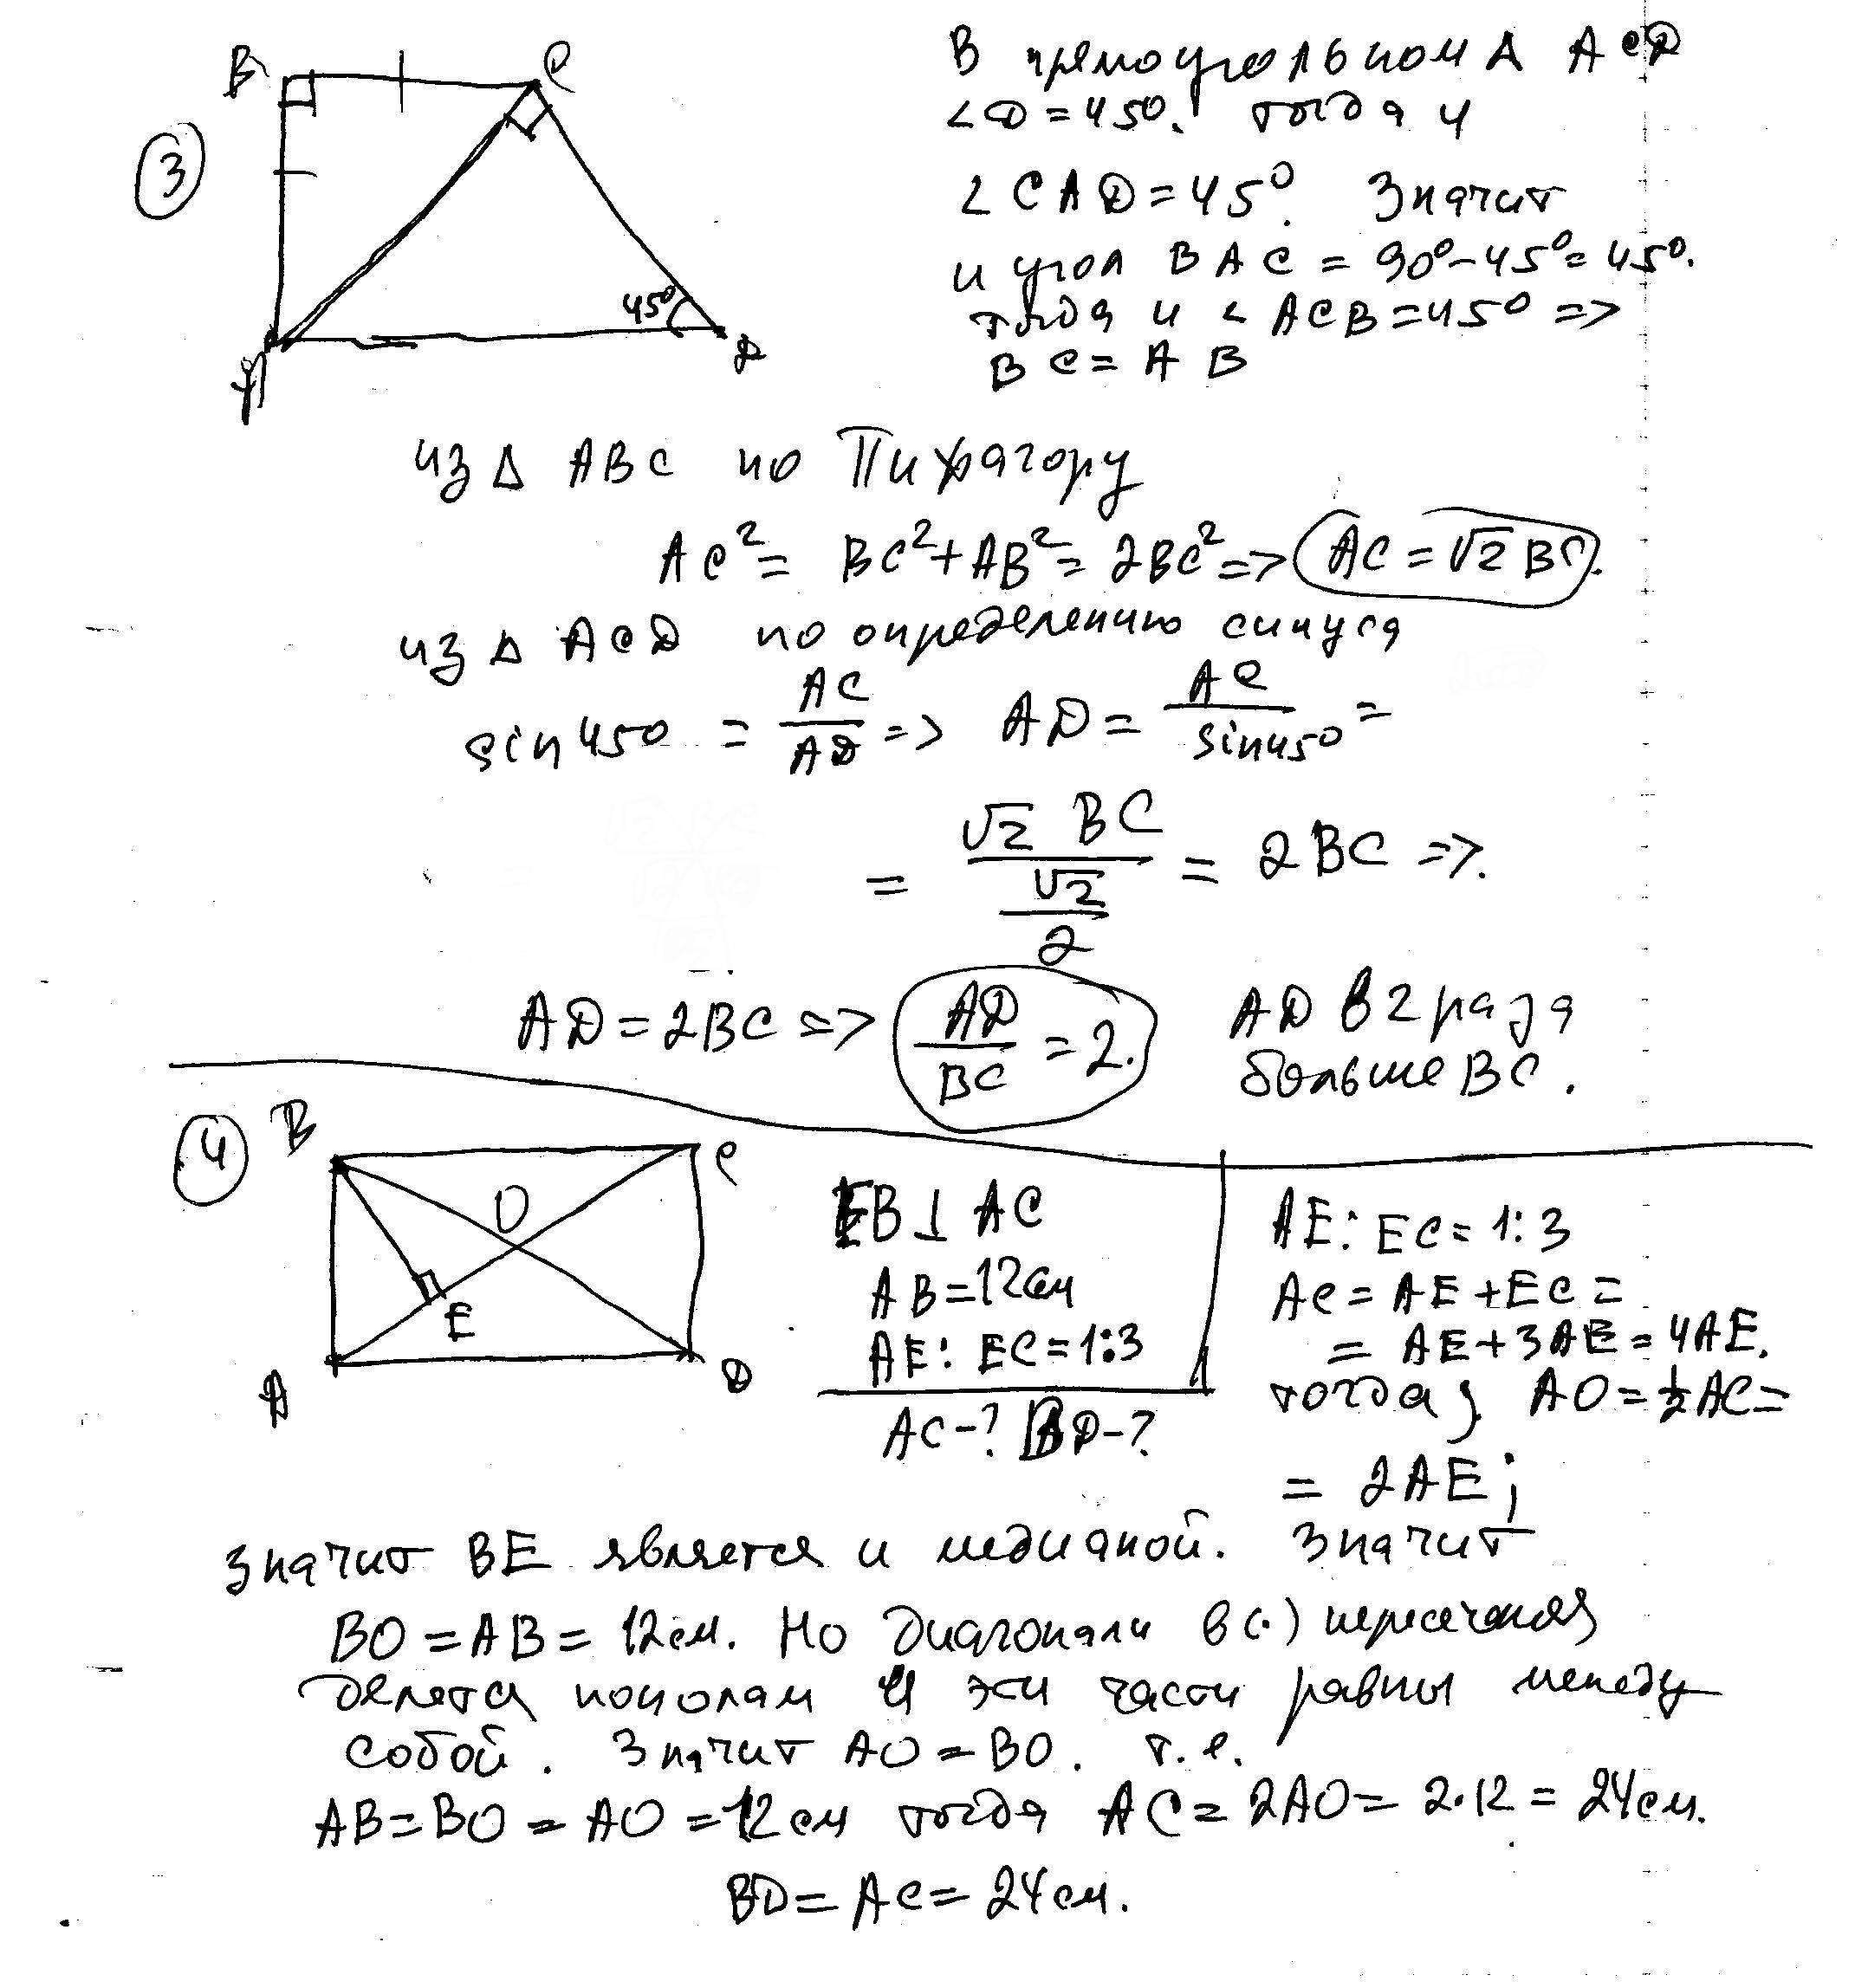 3
B C
A D
45°
В прямоугольном Δ ACD
∠D = 45°. тогда и
∠CAD = 45°. Значит
и угол BAC = 90° - 45° = 45°.
тогда и ∠ACB = 45° =>
BC = AB
из Δ ABC по Пифагору
AC² = BC² + AB² = 2BC² => AC = √2 BC.
из Δ ACD по определению синуса
sin 45° = AC/AD => AD = AC/sin 45° =
= √2 BC / (√2/2) = 2BC =>.
AD = 2BC => AD/BC = 2. AD в 2 раза
больше BC.
4
B C
O
E
A D
EB ⊥ AC
AB = 12 см
AE : EC = 1:3
AC - ? BD - ?
AE : EC = 1:3
AC = AE + EC =
= AE + 3AE = 4AE.
тогда AO = ½ AC =
= 2AE;
значит BE является и медианой. Значит
BO = AB = 12 см. Но диагонали в (·) пересечения
делятся пополам и эти части равны между
собой. Значит AO = BO. т.е.
AB = BO = AO = 12 см тогда AC = 2AO = 2·12 = 24 см.
BD = AC = 24 см.